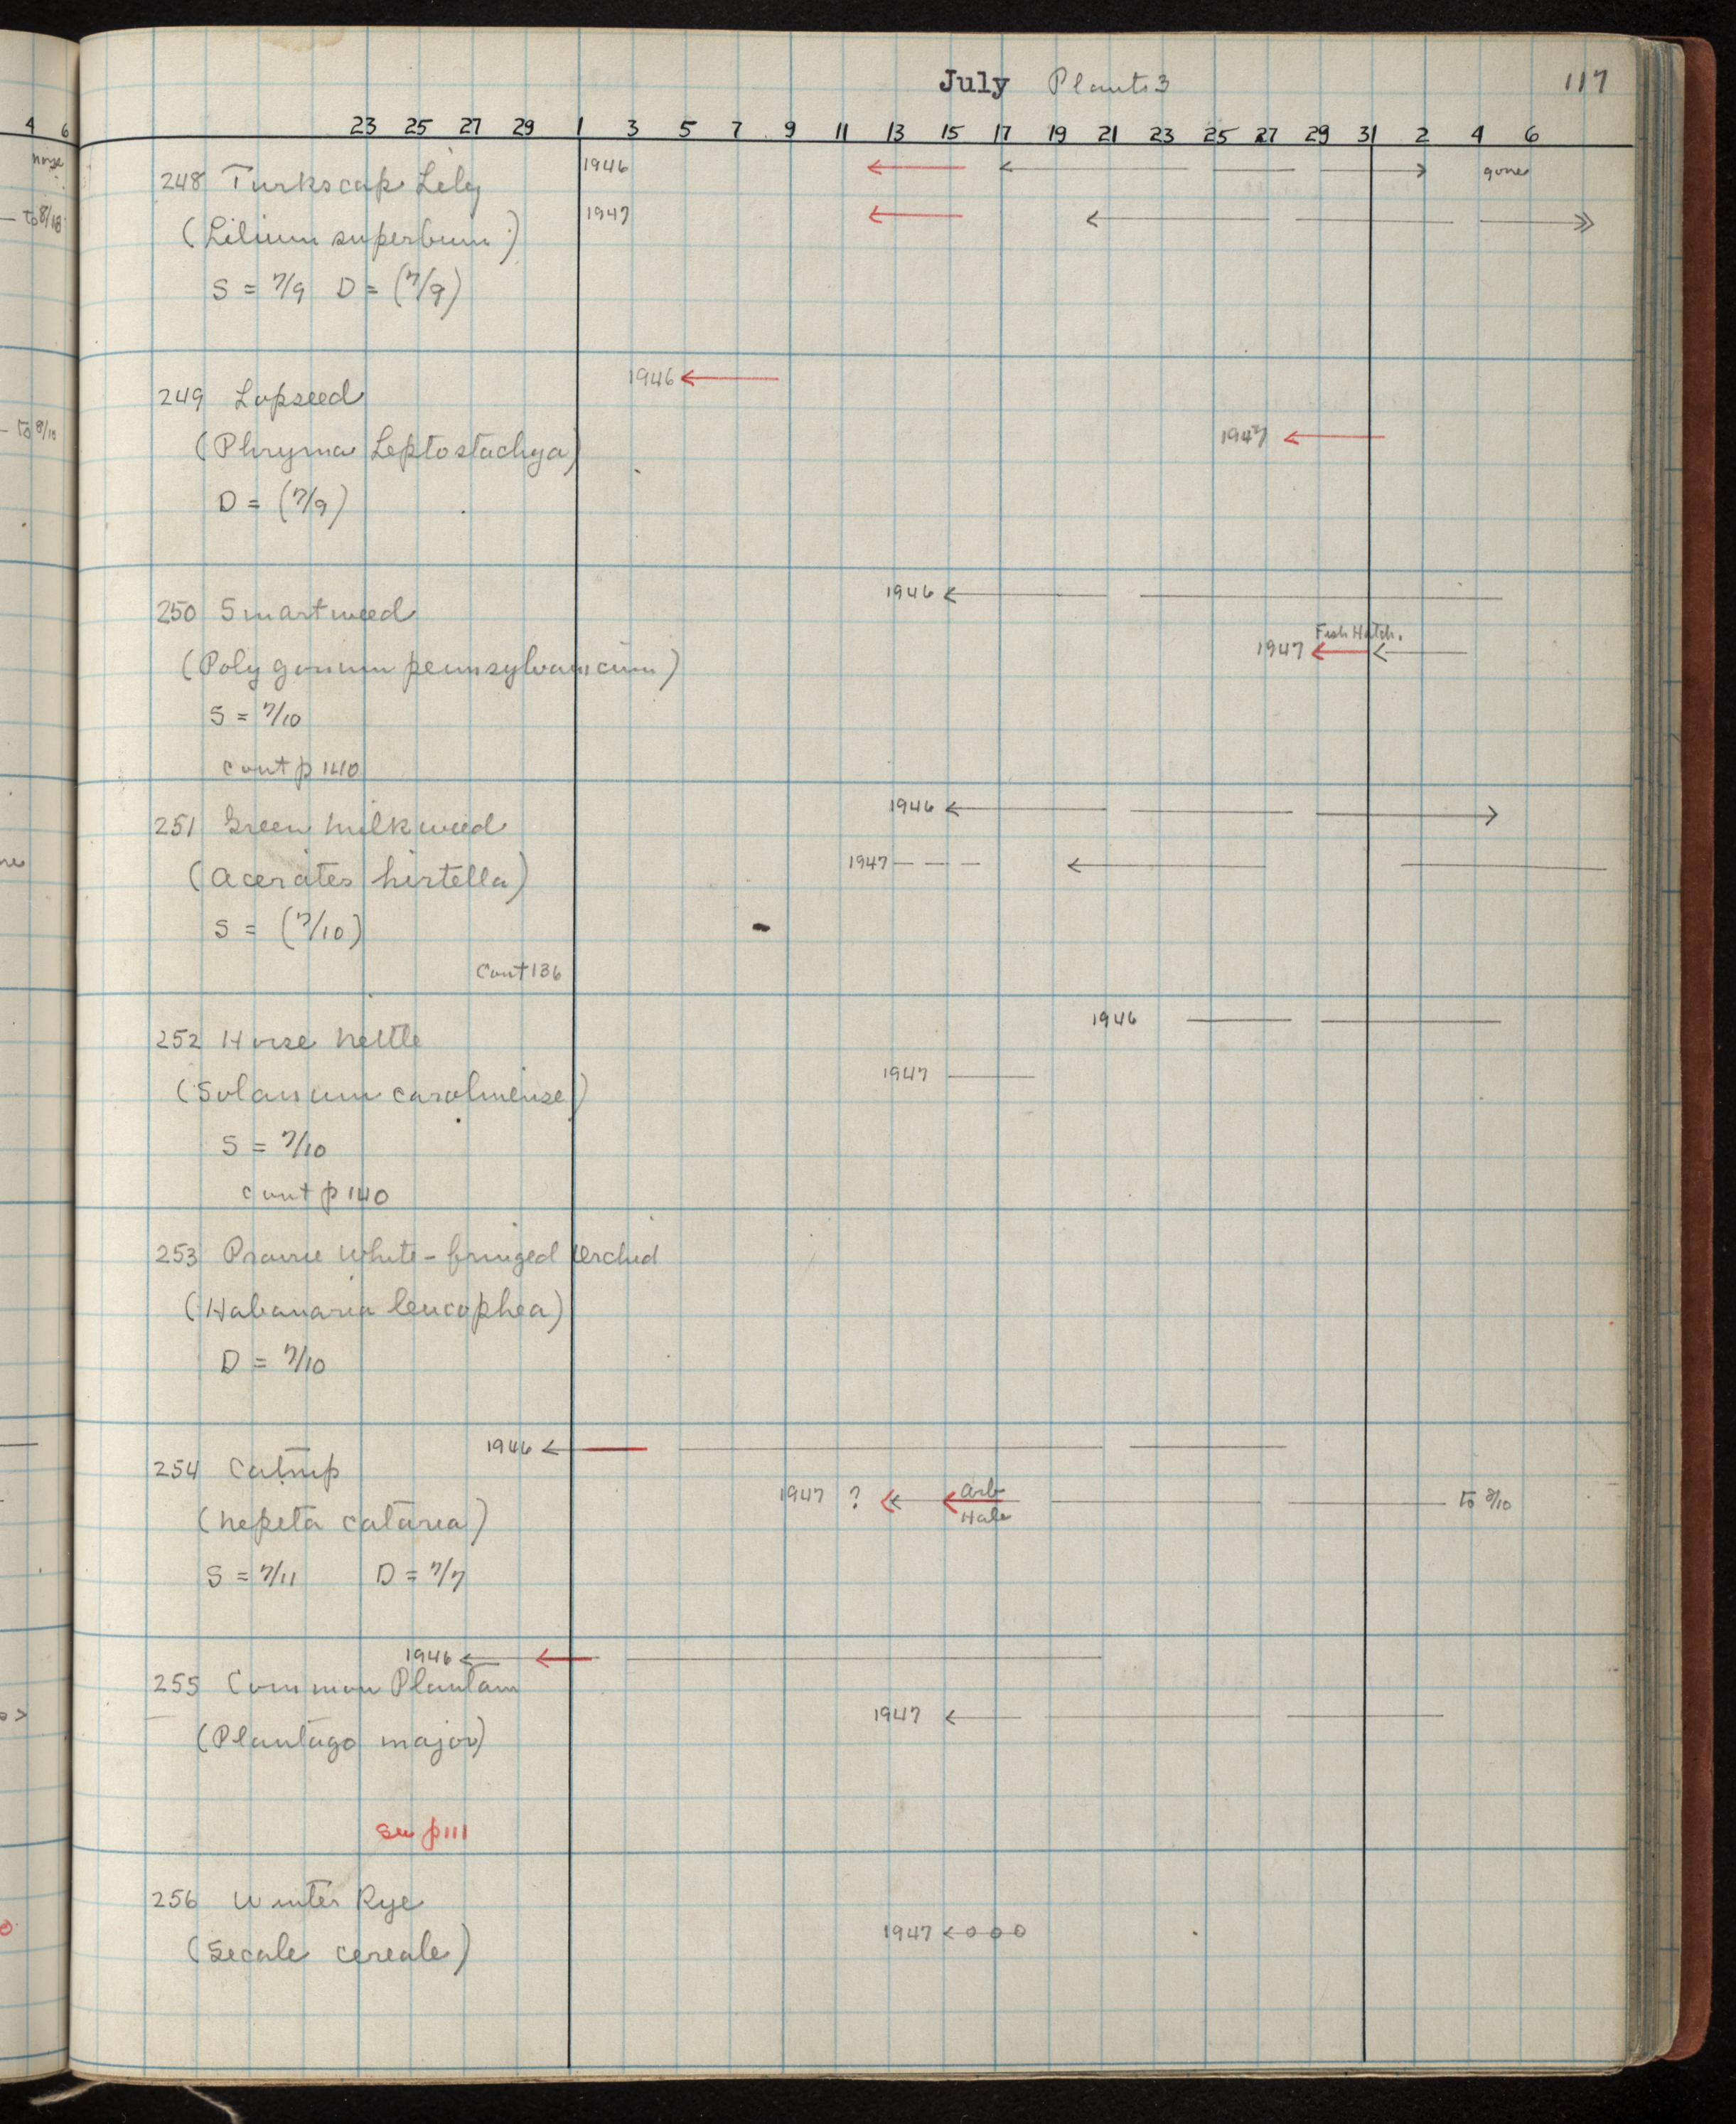 July Plants 117
4 6
23 25 27 29 1 3 5 7 9 11 13 15 17 19 21 23 25 27 29 31 2 4 6
1946 gone
248 Turkscap Lily
1947
to 8/18
(Lilium superbum)
S = 7/9 D = (7/9)
1946
249 Lopseed
1947
to 8/10
(Phryma Leptostachya)
D = (7/9)
1946
250 Smartweed
Fish Hatch.
1947
(Polygonum pennsylvanicum)
S = 7/10
cont p 140
1946
251 Green milkweed
1947
(Acerates hirtella)
S = (7/10)
Cont 136
1946
252 Horse nettle
1947
(Solanum carolinense)
S = 7/10
cont p 140
253 Prairie White-fringed Orchid
(Habanaria leucophea)
D = 7/10
1946
254 Catnip
1947 ? Arb to 8/10
Hale
(nepeta cataria)
S = 7/11 D = 7/7
1946
255 Common Plantain
1947
(Plantago major)
see p 111
256 Winter Rye
1947
(Secale cereale)